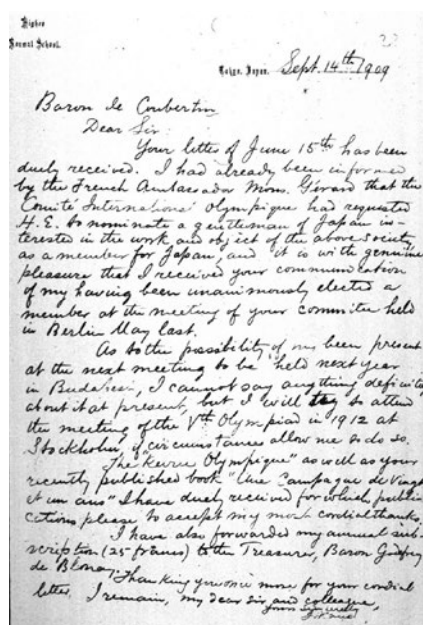 Higher
Normal School.
Tokyo, Japan, Sept. 14th 1909
Baron de Coubertin
Dear Sir:
Your letter of June 15th has been
duely received. I had already been informed
by the French Ambassador Mons. Gérard that the
Comité International Olympique had requested
H.E. to nominate a gentleman of Japan in-
terested in the work and object of the above society
as a member for Japan, and it is with genuine
pleasure that I received your communication
of my having been unanimously elected a
member at the meeting of your committee held
in Berlin May last.
As to the possibility of my been present
at the next meeting to be held next year
in Budapest, I cannot say anything definite
about it at present, but I will try to attend
the meeting of the Vth Olympiad in 1912 at
Stockholm, if circumstances allow me to do so.
The "Revue Olympique" as well as your
recently published book "Une Campagne de Vingt
et un ans" I have duely received for which publi-
cations please to accept my most cordial thanks.
I have also forwarded my annual sub-
scription (25 francs) to the Treasurer, Baron Godefroy
de Blonay. Thanking you once more for your cordial
letter. I remain, my dear sir and colleague,
yours sincerely